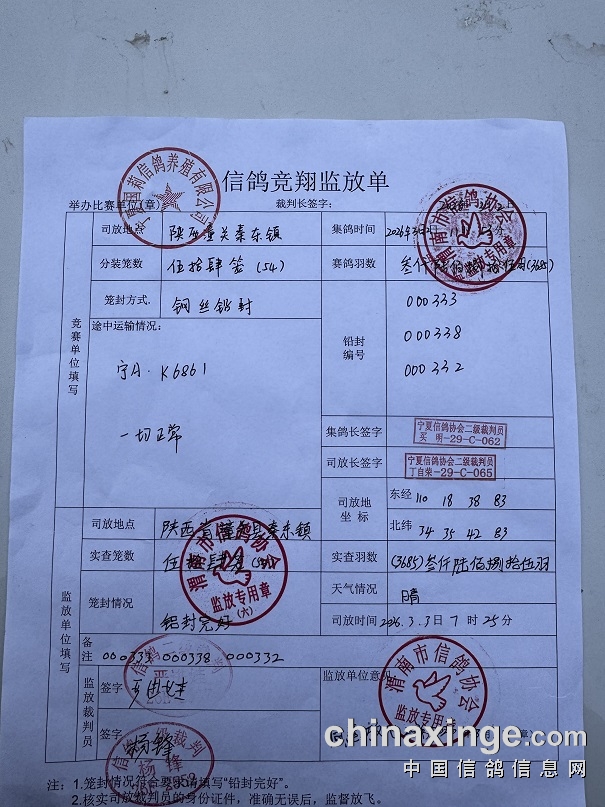 信鸽竞翔监放单
举办比赛单位(章)
裁判长签字:
莉信鸽养殖有限公司
渭南市信鸽协会
监放专用章
竞赛单位填写
司放地点 陕西潼关秦东镇 集鸽时间 2026年3月2日
分装笼数 伍拾肆笼 (54) 赛鸽羽数 叁仟陆佰捌拾伍羽(3685)
笼封方式 钢丝铅封
铅封编号 000333
000338
000332
途中运输情况:
宁A·K6861
一切正常
集鸽长签字 宁夏信鸽协会二级裁判员
买 明-29-C-062
司放长签字 宁夏信鸽协会二级裁判员
丁自荣-29-C-065
司放地坐标 东经 110 18 38 83
北纬 34 35 42 83
监放单位填写
司放地点 陕西省潼关县秦东镇
实查笼数 伍拾肆笼 实查羽数 (3685)叁仟陆佰捌拾伍羽
渭南市信鸽协会
监放专用章
(六)
笼封情况 铅封完好 天气情况 晴
司放时间 2026.3.3日7时25分
备注 000333 000338 000332
监放裁判员 签字
签字 杨锋
监放单位意见
渭南市信鸽协会
监放专用章
注:1.笼封情况符合要求请填写“铅封完好”。
2.核实司放裁判员的身份证件,准确无误后,监督放飞。
chinaxinge.com
中国信鸽信息网